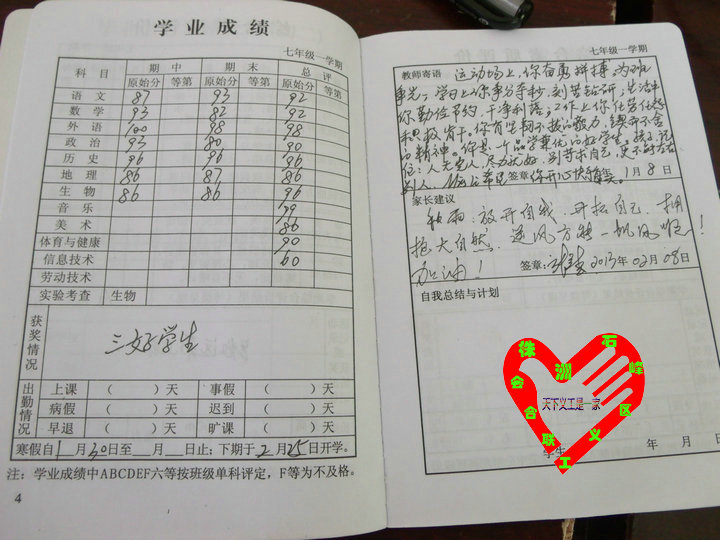 学业成绩
七年级一学期
科目 期中 期末 总评
原始分 等第 原始分 等第 原始分 等第
语文 87 93 92
数学 93 82 92
外语 100 98 98
政治 93 80 90
历史 96 96 96
地理 86 87 86
生物 86 86 96
音乐
美术 86
体育与健康 90
信息技术 60
劳动技术
实验考查 生物
获奖情况 三好学生
出勤情况 上课 ( )天 事假 ( )天
病假 ( )天 迟到 ( )天
早退 ( )天 旷课 ( )天
寒假自1月30日至 月 日止;下期于2月25日开学。
注:学业成绩中ABCDEF六等按班级单科评定,F等为不及格。
4
七年级一学期
教师寄语 运动场上,你奋勇拼搏,为班
争光;学习上你争分夺秒,刻苦钻研;生活中
你勤俭节约,干净利落;工作上你
积极肯干。你有坚韧不拔的毅力,
的精神。你是一个品学兼优的好学生。孩子,记
住:人无完人,尽力就好,别苛求自己,
别人。 签章: 你开心快乐 1月8日
家长建议
秋雨:放开自我,开拓自己,拥
抱大自然,逆风方能一帆风顺!
加油!
签章: 2013年02月08日
自我总结与计划
株洲石峰区义工联合会
天下义工是一家
学生 年 月 日